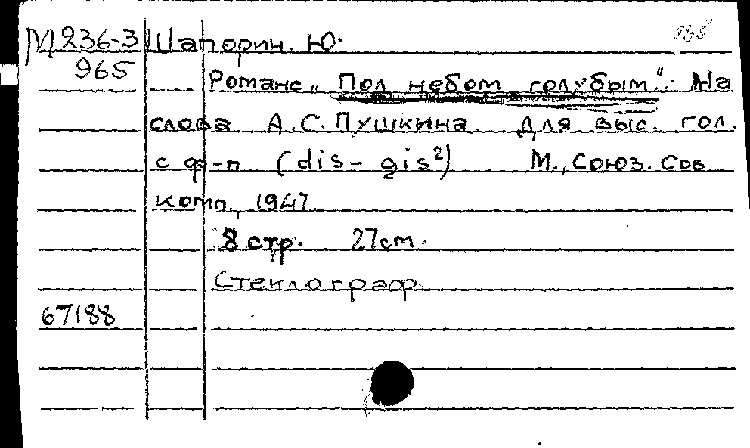 М236-3 Шапорин. Ю.
965 Романс „Под небом голубым“. На
слова А.С.Пушкина для выс. гол.
с ф-п (dis - gis²) М., Союз. Сов
комп., 1947
8 стр. 27см.
Стеклограф.
67188